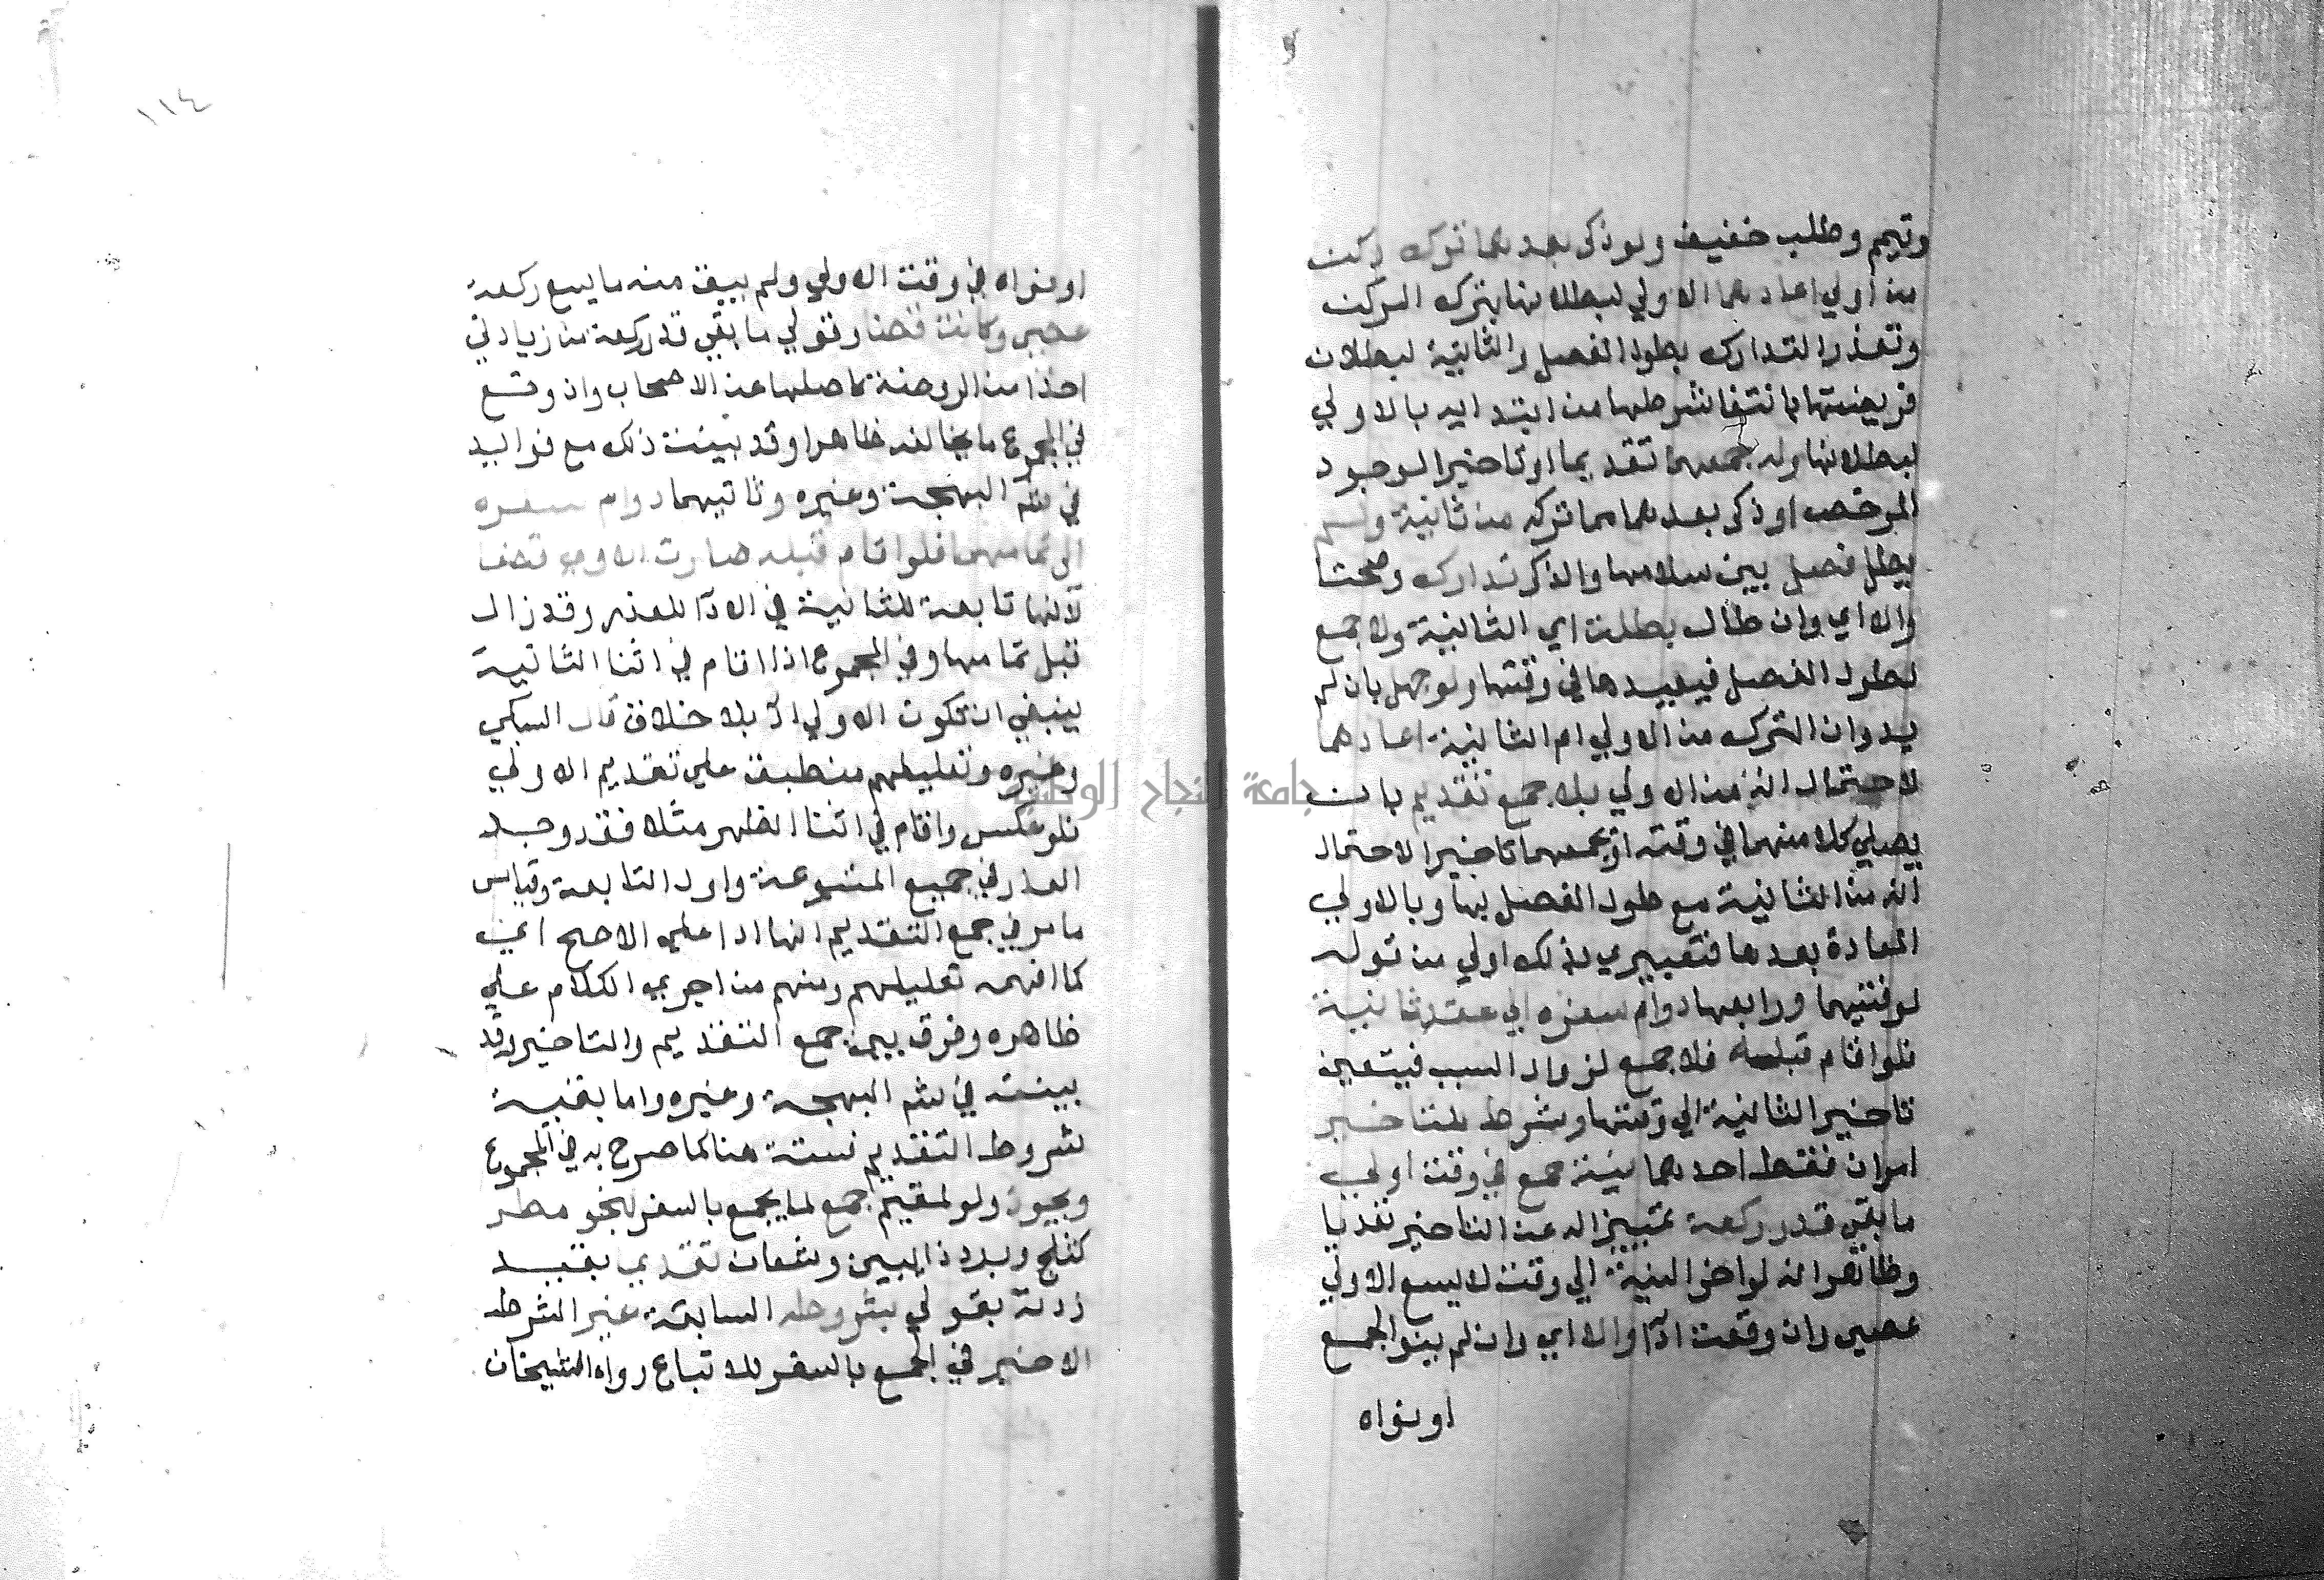 وتيمم وطلب خفيف ولو ذكر بعدهما ترك ركن
من اولي اعادهما الاولي لبطلانها بترك الركن
وتعذر التدارك بطول الفصل والثانية لبطلان
فريضتها بانتفا شرطها من ابتدايه بالاولي
لبطلانها وله جمعهما تقديما او تاخيرا لوجود
المرخص او ذكر بعدهما مما تركه من ثانية ولم
يطل فصل بين سلامها والذكر تدارك وصحتا
والا اي وان طال بطلت اي الثانية ولا جمع
لطول الفصل فيعيدها في وقتها ولو جهل بان لم
يدر ان الترك من الاولي ام الثانية اعادهما
لاحتمال انه من الاولي بلا جمع تقديم بان
يصلي كلا منهما في وقته او يجمعهما تاخيرا لاحتمال
انه من الثانية مع طول الفصل بها وبالاولي
المعادة بعدها فتعبيري بذلك اولي من قوله
لوقتيهما ورابعها دوام سفره الي عقد ثانية
فلو اقام قبله فلا جمع لزوال السبب فيتعين
تاخير الثانية الي وقتها وشرط للتاخير
امران فقط احدهما نية جمع في وقت اولي
ما بقي قدر ركعة تمييزا له عن التاخير تعديا
وظاهر انه لو اخر النية الي وقت لا يسع الاولي
عصي وان وقعت ادآ والا اي وان لم ينو الجمع
او نواه
١١٤
او نواه في وقت الاولي ولم يبق منه ما يسع ركعة
عصي وكانت قضا وقولي ما بقي قدر ركعة من زيادتي
اخذا من الروضة كاصلها عن الاصحاب وان وقع
في المجموع ما يخالفه ظاهرا وقد بينت ذلك مع فوايد
في شرح البهجة وغيره وثانيهما دوام سفره
الي تمامهما فلو اقام قبله صارت الاولي قضا
لانها تابعة للثانية في الادآ للعذر وقد زال
قبل تمامها وفي المجموع اذا اقام في اثنا الثانية
ينبغي ان تكون الاولي ادآ بلا خلاف قال السبكي
وغيره وتعليلهم منطبق علي تقديم الاولي
فلو عكس واقام في اثنا الظهر مثلا فقد وجد
العذر في جميع المتبوعة واول التابعة وقياس
ما مر في جمع التقديم انها ادا علي الاصح اي
كما افهمه تعليلهم ومنهم من اجري الكلام علي
ظاهره وفرق بين جمع التقديم والتاخير وقد
بينته في شرح البهجة وغيره واما بقية
شروط التقديم فسنة هنا كما صرح به في المجموع
ويجوز ولو لمقيم جمع لما يجمع بالسفر لنحو مطر
كثلج وبرد ذايبين وشفان تقديما بقيد
زدته بقولي بشروطه السابقة غير الشرط
الاخير في الجمع بالسفر للاتباع رواه الشيخان
جامعة النجاح الوطنية